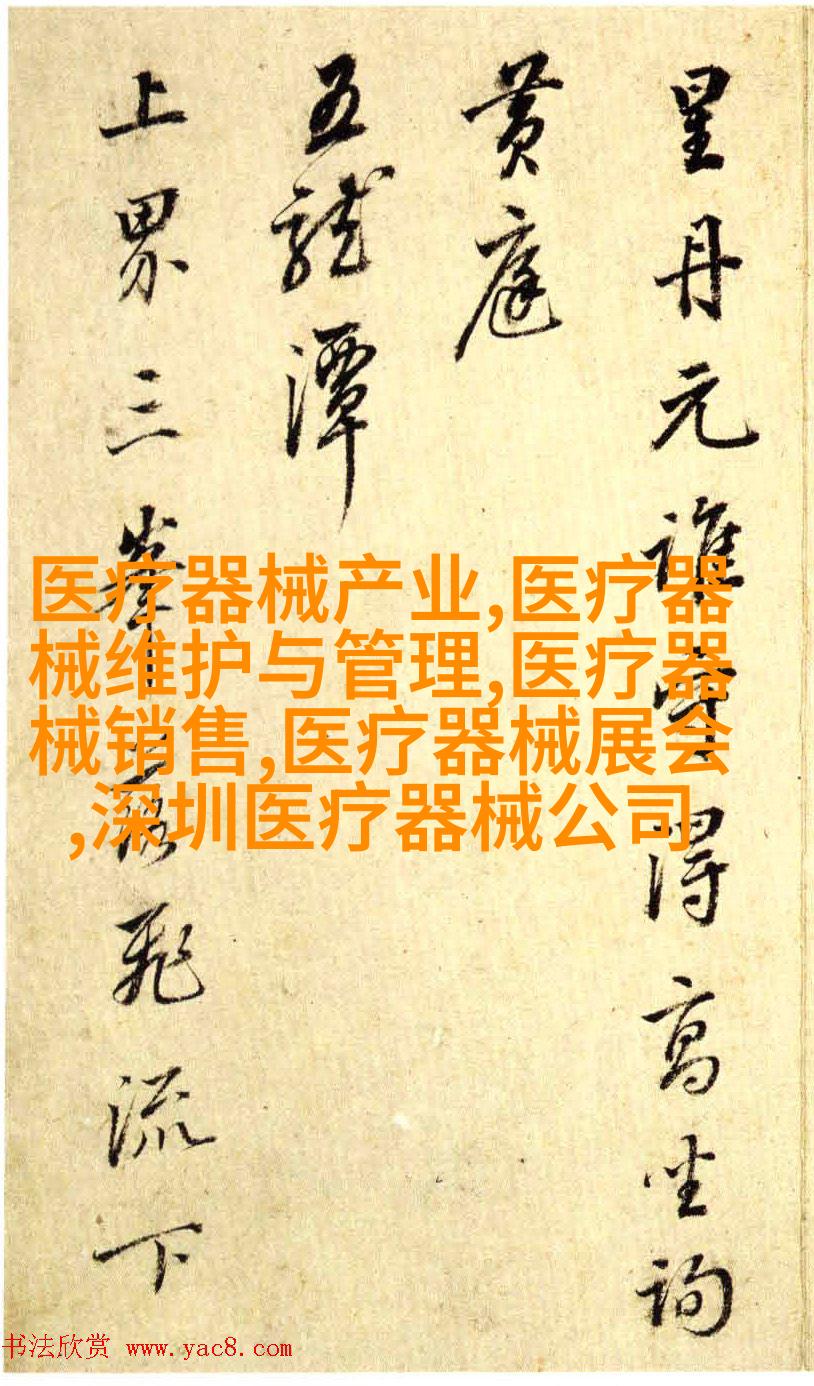 星丹元誰得高坐詢
黄庭
五龍潭
上界三峯飛流下
医疗器械产业,医疗器
械维护与管理,医疗器
械销售,医疗器械展会
,深圳医疗器械公司
书法欣赏 www.yac8.com